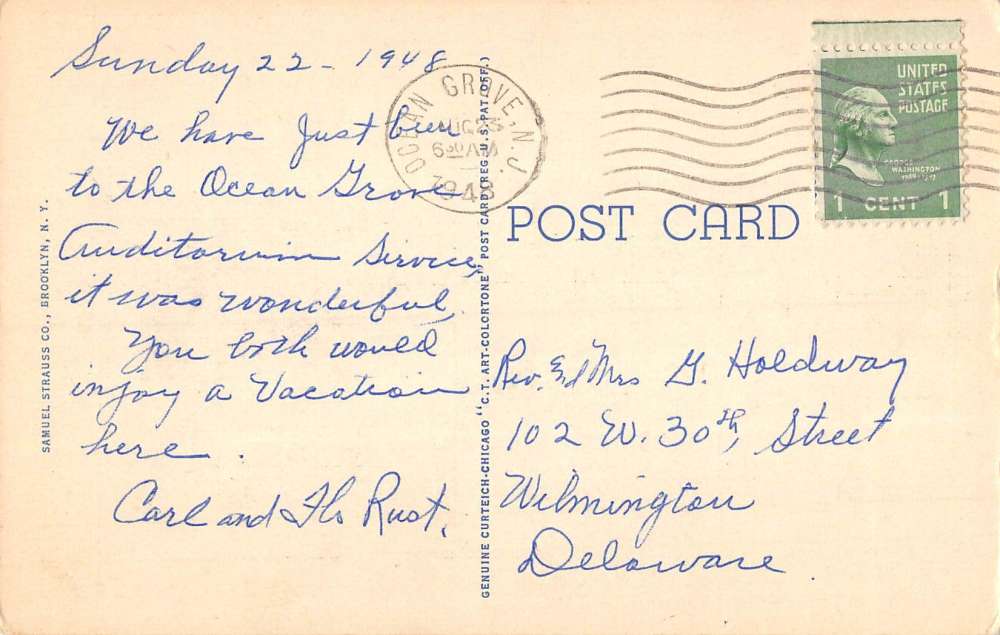 Sunday 22 - 1948
We have Just been
to the Ocean Grove
Auditorium Service,
it was wonderful.
You both would
injoy a Vacation
here.
Carl and Flo Rust.
SAMUEL STRAUSS CO., BROOKLYN, N. Y.
GENUINE CURTEICH-CHICAGO "C.T. ART-COLORTONE" POST CARD (REG. U.S. PAT. OFF.)
OCEAN GROVE, N.J.
AUG 23
6 30 AM
1948
UNITED
STATES
POSTAGE
GEORGE
WASHINGTON
1 CENT 1
POST CARD
Rev. & Mrs G. Holdway
102 W. 30th Street
Wilmington
Delaware